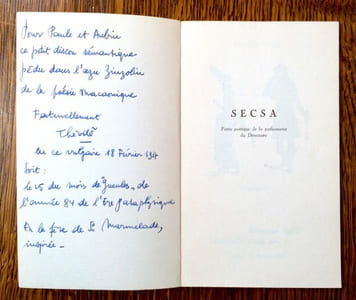 Pour Paule et Aubin
ce petit discou sémantique
pêdu dans l'azu Zinzolin
de la poésie Macaonique
Fatenellement
ce vulgaire 18 Février
Soit :
le 25 du mois de Gueules, de
l'année 84 de l'Ère pataphysique
En la fête de Ste Marmelade,
inspirée –
SECSA
poétique de la parfumeuse
du Directoire